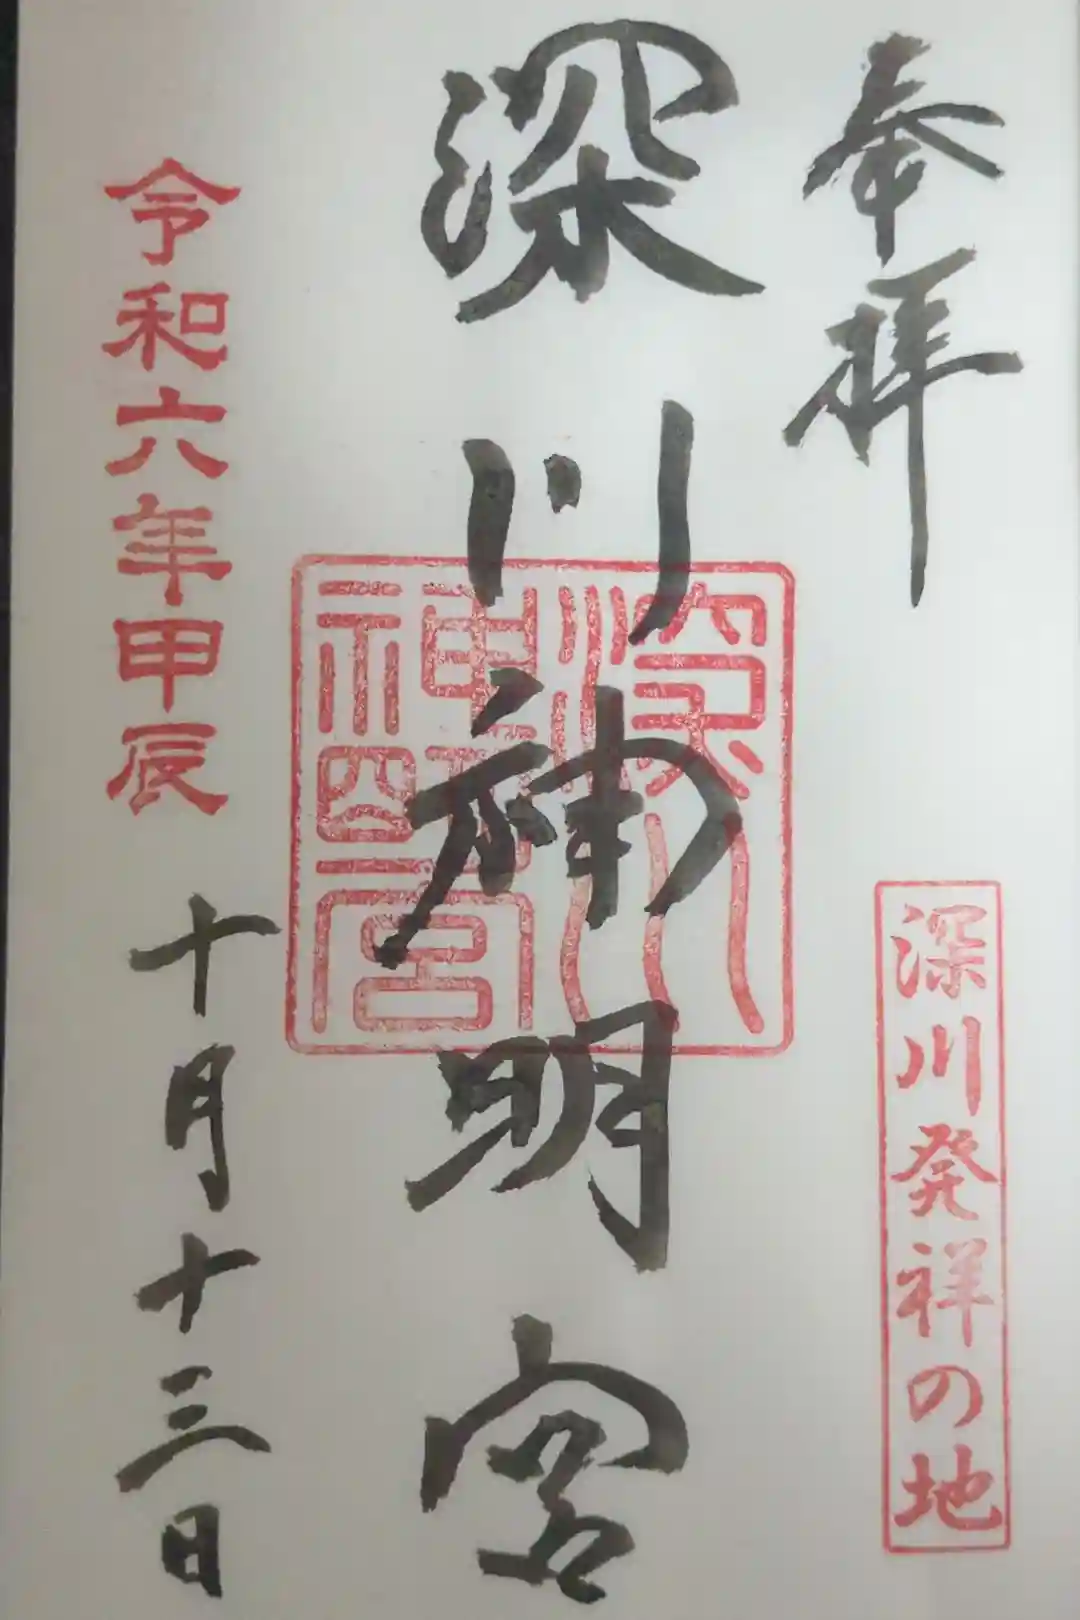 奉拝
深川発祥の地
深川神明宮
深川
神明宮
令和六年甲辰
十月十三日